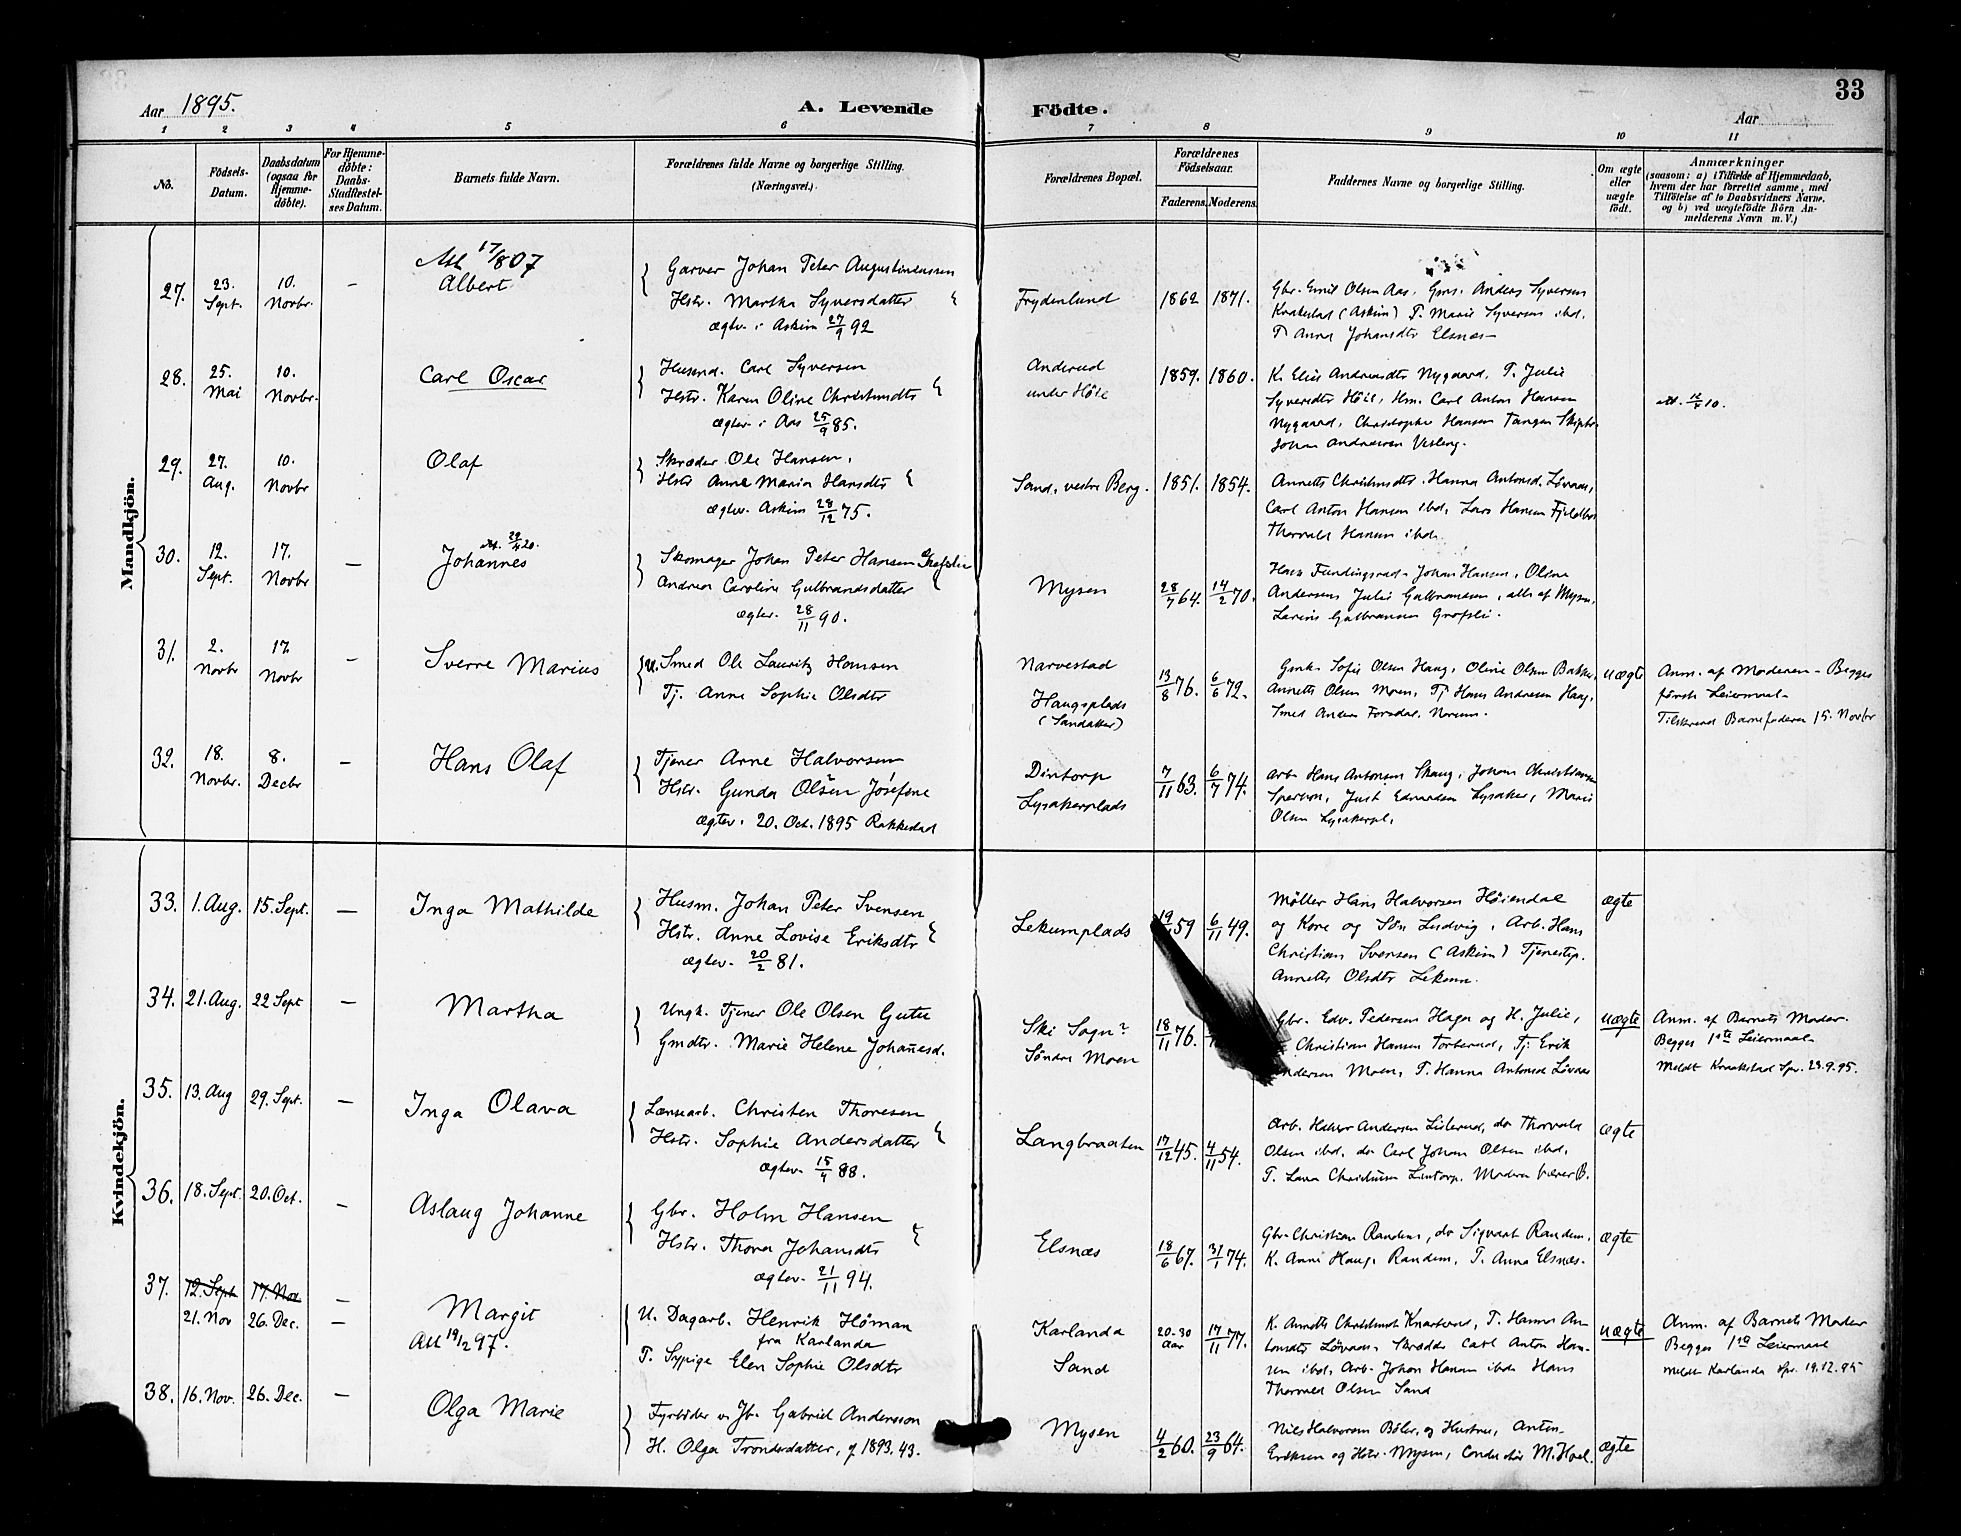 33
Aar 1895.
A. Levende Födte.
Aar
1 2 3 4 5 6 7 8 9 10 11
No.
Födsels-Datum.
Daabsdatum (ogsaa for Hjemme-döbte).
For Hjemme-döbte: Daabs-Stadfæstel-ses Datum.
Barnets fulde Navn.
Forældrenes fulde Navne og borgerlige Stilling. (Næringsvei.)
Forældrenes Bopæl.
Forældrenes Födselsaar.
Faderens. Moderens.
Faddernes Navne og borgerlige Stilling.
Om ægte eller uægte födt.
Anmærkninger
(saasom: a) i Tilfælde af Hjemmedaab,
hvem der har forrettet samme, med
Tilföielse af to Daabsvidners Navne,
og b) ved uægtefödte Börn An-
melderens Navn m. V.)
Mandkjön.
27. 23. Sept. 10. Novbr. –
Att 17/8 07
Albert
Garver Johan Peter Augustinussen
Hstr. Martha Syversdatter
ægtev. i Askim 27/9 92
Frydenlund 1862 1871.
Gbr. Emil Olsen Aas. Gms. Anders Syversen
Krakestad (Askim) P. Marie Syversen ibd.
P. Anna Johansdtr Elsnæs
28. 25. Mai 10. Novbr.
Carl Oscar
Husmd. Carl Syversen
Hstr. Karen Oline Christensdtr
ægtev. i Aas 25/9 85.
Anderud
under Höie
1859. 1860.
K. Elise Andreasdtr Nygaard, P. Julie
Syversdtr Höie, Hm. Carl Anton Hansen
Nygaard, Christopher Hansen Tangen
Johan Andreasen
29. 27. Aug. 10. Novbr
Olaf
Skræder Ole Hansen,
Hstr Anne Maria Hansdtr
ægtev. Askim 28/12 75.
Sand, vestre Berg. 1851. 1854.
Annette Christensdtr. Hanna Antonsd. Lövaas,
Carl Anton Hansen ibd, Lars Hansen
Thorvald Hansen ibd.
30. 12. Sept. 17. Novbr –
Att. 29/4 20.
Johannes
Skomager Johan Peter Hansen
Andrea Caroline Gulbrandsdatter
ægtev. 28/11 90.
Mysen 28/7 64. 14/2 70.
Hans Johan Hansen, Oline
Andersen, Julie Gulbransen, alle af Mysen,
Gulbransen
31. 2. Novbr 17. Novbr –
Sverre Marius
U. Smed Ole Lauritz Hansen
Tj. Anne Sophie Olsdtr
Narvestad
Haugsplads
(Sandaker)
13/8 76. 6/6 72.
Gmk. Sofie Olsen Haug, Oline Olsen Bakke,
Annette Olsen Moen, Tj Hans Andresen Haug,
Smed Anders
uægte
Anm. af Moderen - Begges
förste Leiermaal
Tilskrevet Barnefaderen 15. Novbr
32. 18. Novbr. 8. Decbr –
Hans Olaf
Tjener Arne Halvorsen
Hstr. Gunda Olsen Josefine
ægtev. 20. Oct. 1895 Rakkestad
Dintorp
Lysakerplads
7/11 63. 6/7 74.
Arb. Hans Antonsen Skaug, Johan Christiansen
Just Edvardsen Lysaker, Marie
Olsen Lysakerpl.
Kvindekjön.
33. 1. Aug. 15. Sept. –
Inga Mathilde
Husm. Johan Peter Svensen
Hstr. Anne Lovise Eriksdtr
ægtev. 20/2 81.
Lekumplads 59 6/11 49.
Möller Hans Halvorsen Höiendal
og Kone og Sön Ludvig, Arb. Hans
Christian Svensen (Askim) Tjenestep.
Annette Olsdtr Lekum.
ægte
34. 21. Aug. 22 Sept –
Martha
Ungk. Tjener Ole Olsen Gutu
Gmdtr. Marie Helene Johanesd.
Ski Sogn?
Söndre Moen
18/11 76.
Gbr. Edv. Pedersen Hager og H. Julie,
Christian Hansen Torbernd, Tj. Erik
Andersen Moen, P. Hanna Antonsd Lövaas
uægte
Anm. af Barnets Moder.
Begges 1ste Leiermaal
Meldt Kraakstad Spr. 23.9.95.
35. 13. Aug 29. Sept. –
Inga Olava
Lænsearb. Christen Thoresen
Hstr. Sophie Andersdatter
ægtev. 15/4 88.
Langbraaten 17/12 45. 4/11 54.
Arb. Andersen do Thorvald
Olsen ibd. do Carl Johan Olsen ibd,
P. Laura Moderen bærer B.
ægte
36. 18. Sept. 20. Oct. –
Aslaug Johanne
Gbr. Holm Hansen
Hstr. Thora Johansdtr
ægtev. 21/11 94.
Elsnæs 18/6 67. 31/1 74.
Gbr. Christian Randem, do Sigvart Randem,
K. Anne Haug, Randem, P. Anna Elsnæs.
ægte
37. 12. Sept 17. Nov –
21. Nov 26. Dec. –
Margit
Att 19/2 97.
U. Dagarb. Henrik Höman
fra Karlanda
P. Sypige Elen Sophie Olsdtr
Karlanda
Sand
20-30 Aar 17/11 77.
K. Annette P. Hanna An-
tonsdtr Lövaas, Skrædder Carl Anton Han-
sen ibd, Arb. Johan Hansen ibd Hans
Thorvald Olsen Sand
uægte
Anm. af Barnets Moder
Begges 1ste Leiermaal
Meldt Karlanda Spr. 19.12.95
38. 16. Nov. 26. Dec. –
Olga Marie
Fyrböder v. Jb. Gabriel Andersson
H. Olga Trondsdatter, 1893. 43.
Mysen 4/2 60. 23/9 64.
Nils Halvorsen Böler, og Hustru, Anton
Eriksen og Hstr. Mysen, M. Hoel.
ægte